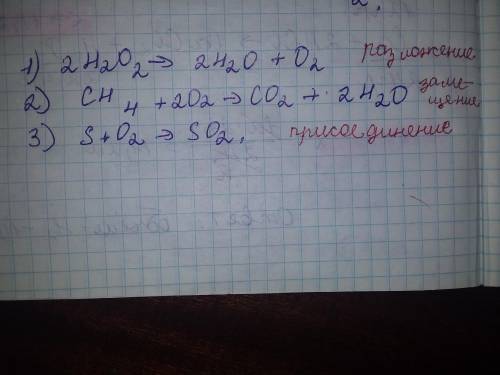 1) 2H₂O₂ → 2H₂O + O₂ разложение
2) CH₄ + 2O₂ → CO₂ + 2H₂O заме-
щение
3) S + O₂ → SO₂, присоединение